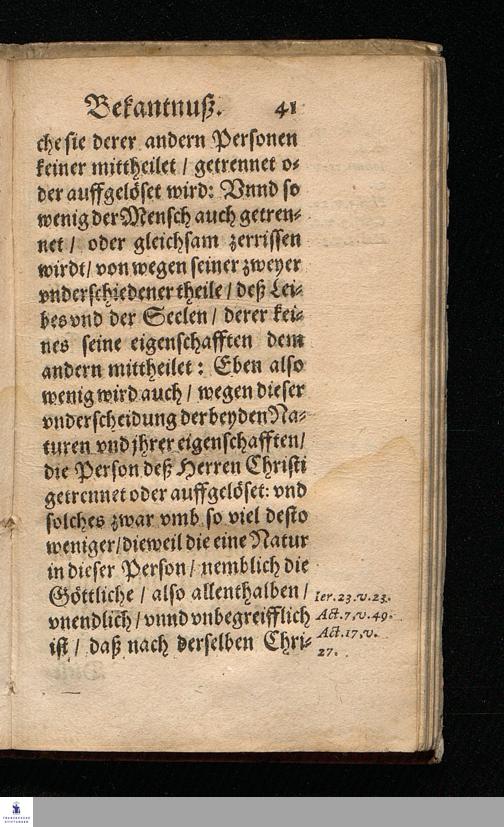 Bekantnuß. 41
che sie derer andern Personen
keiner mittheilet / getrennet o-
der auffgelöset wird: Vnnd so
wenig der Mensch auch getren-
net / oder gleichsam zerrissen
wirdt / von wegen seiner zweyer
vnderschiedener theile / deß Lei-
bes vnd der Seelen / derer kei-
nes seine eigenschafften dem
andern mittheilet: Eben also
wenig wird auch / wegen dieser
vnderscheidung der beyden Na-
turen vnd jhrer eigenschafften /
die Person deß Herren Christi
getrennet oder auffgelöset: vnd
solches zwar vmb so viel desto
weniger / dieweil die eine Natur
in dieser Person / nemblich die
Göttliche / also allenthalben / Ier. 23. v. 23.
vnendlich / vnnd vnbegreifflich Act. 7. v. 49.
ist / daß nach derselben Chri- Act. 17. v.
27.
FRANCKESCHE
STIFTUNGEN